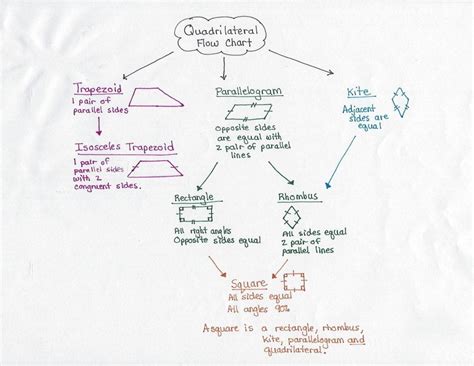 Quadrilateral
Flow Chart
Trapezoid
1 pair of
parallel sides
Parallelogram
Opposite sides
are equal with
2 pair of parallel
lines
Kite
Adjacent
sides are
equal
Isosceles Trapezoid
1 pair of
parallel sides
with 2
congruent sides.
Rectangle
All right angles
Opposite sides equal
Rhombus
All sides equal
2 pair of
parallel lines
Square
All sides equal
All angles 90°
A square is a rectangle, rhombus,
kite, parallelogram and
quadrilateral.